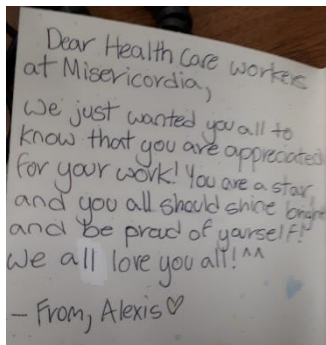 Dear Health Care workers
at Misericordia,
We just wanted you all to
know that you are appreciated
for your work! You are a star
and you all should shine bright
and be proud of yourself!
We all love you all! ^^
- From, Alexis ♡